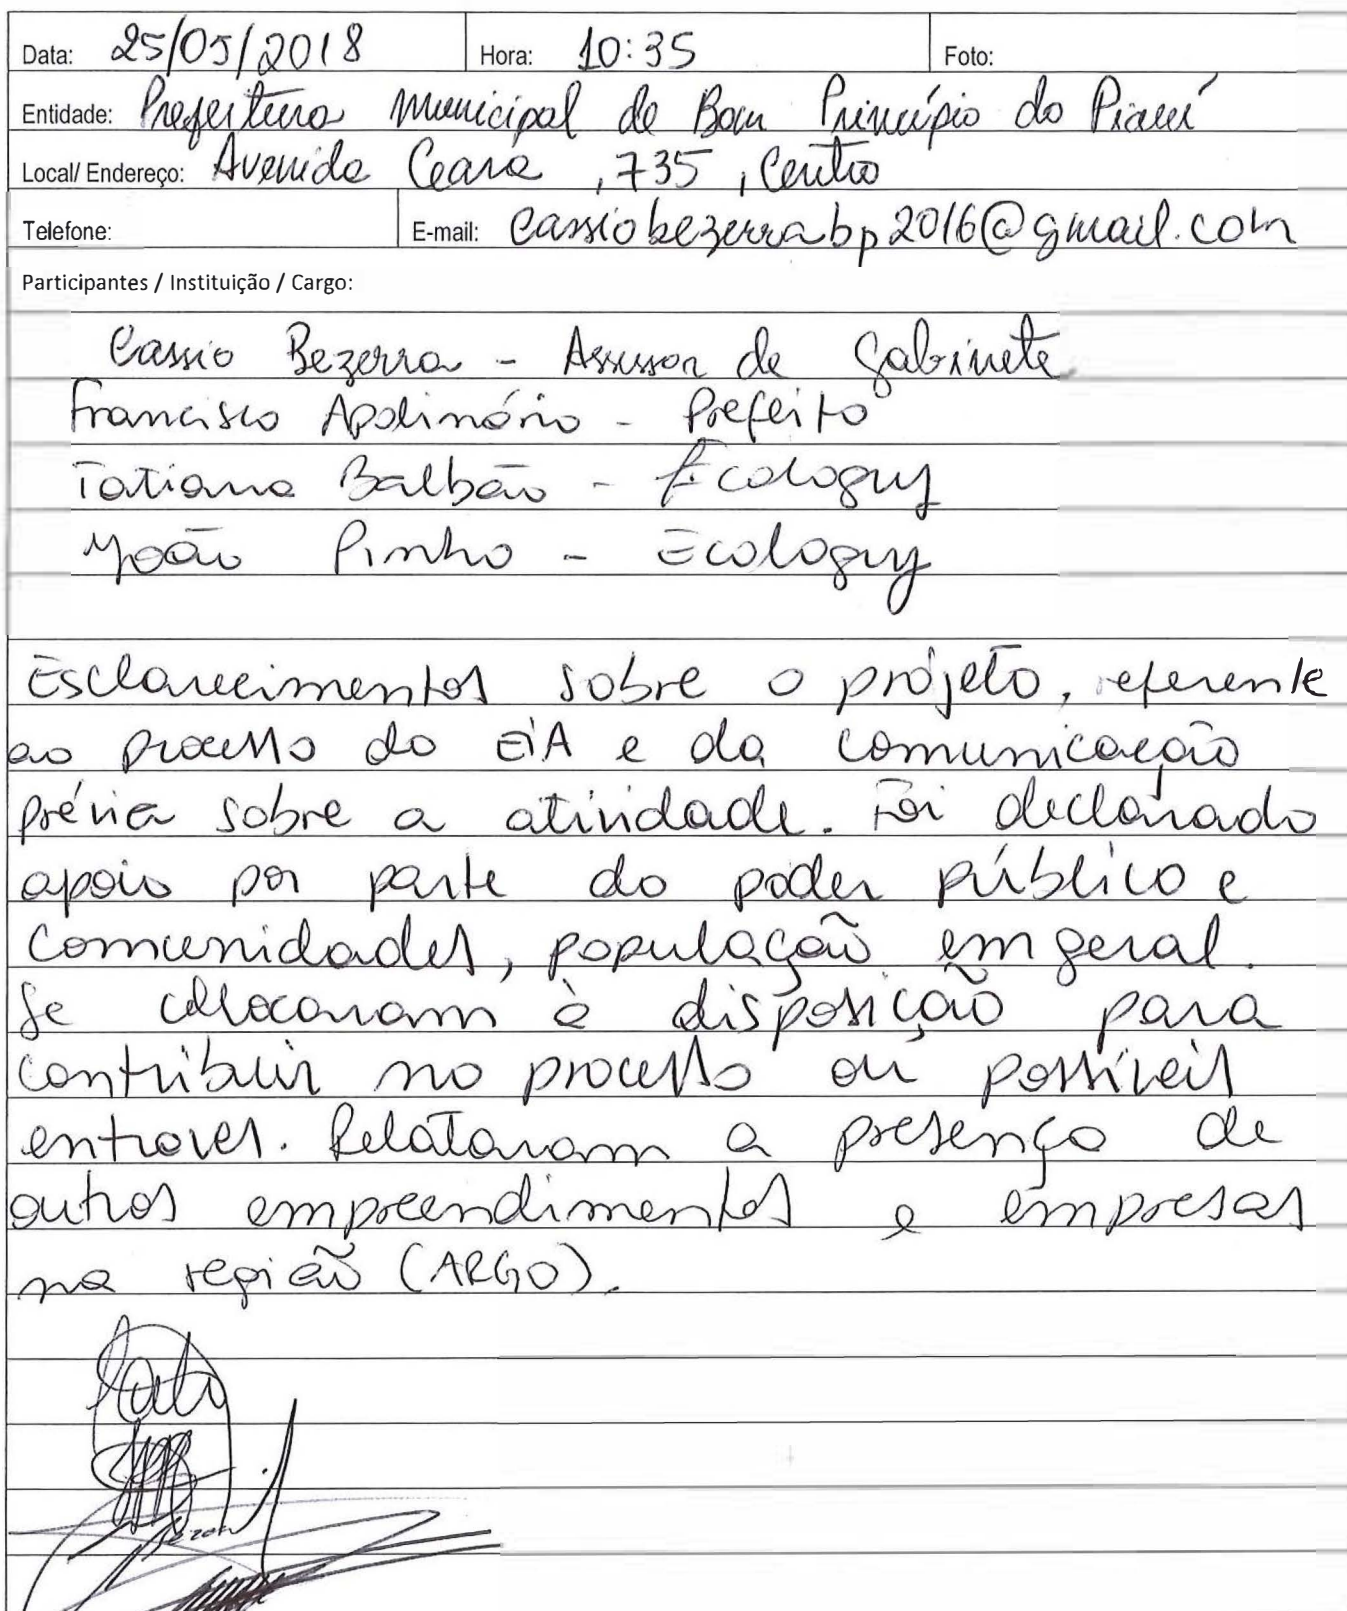 Data: 25/05/2018 Hora: 10:35 Foto:
Entidade: Prefeitura Municipal de Bom Princípio do Piauí
Local/ Endereço: Avenida Ceara , 735 , Centro
Telefone: E-mail: cassiobezerrabp2016@gmail.com
Participantes / Instituição / Cargo:
Cassio Bezerra - Assessor de Gabinete
Francisco Apolinário - Prefeito
Tatiana Balbão - Ecology
João Pinho - Ecology
Esclarecimentos sobre o projeto, referente
ao processo do EIA e da comunicação
prévia sobre a atividade. Foi declarado
apoio por parte do poder público e
comunidades, população em geral.
Se colocaram à disposição para
contribuir no processo ou possíveis
entraves. Relataram a presença de
outros empreendimentos e empresas
na região (ARGO).